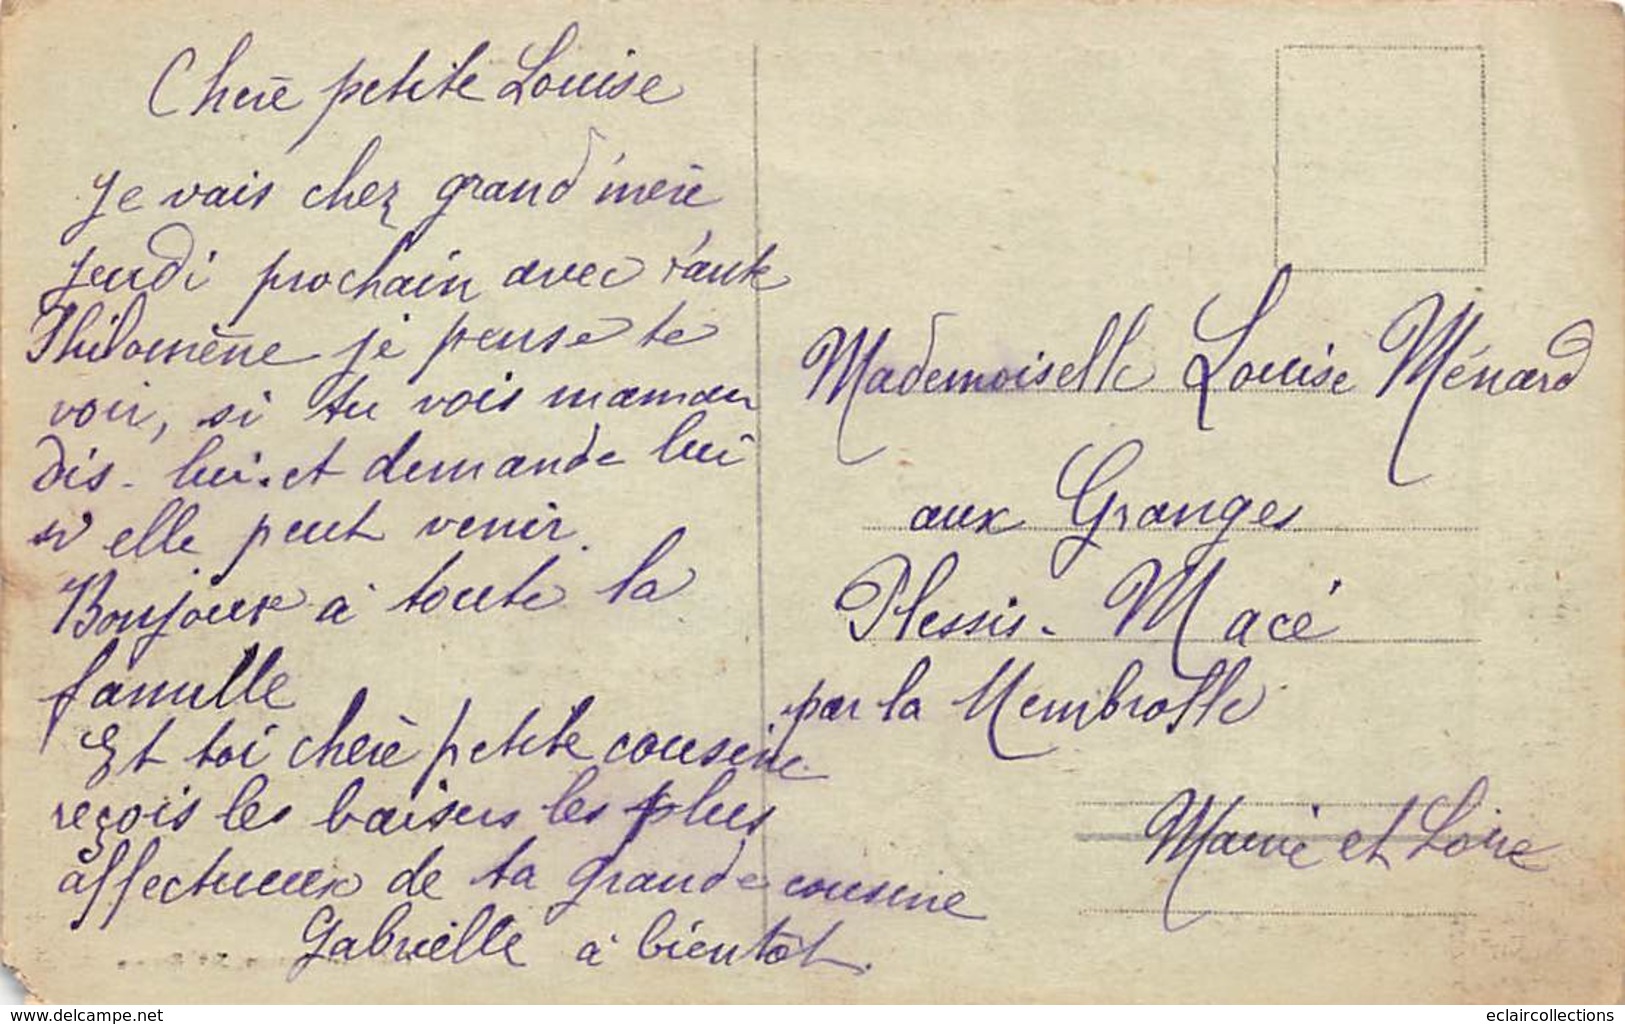 Chère petite Louise
Je vais chez grand'mère
jeudi prochain avec tante
Philomène je pense te
voir, si tu vois maman
dis-lui et demande lui
si elle peut venir.
Bonjour à toute la
famille
Et toi chère petite cousine
reçois les baisers les plus
affectueux de ta grande cousine
Gabrielle à bientôt.
Mademoiselle Louise Ménard
aux Granges
Plessis-Macé
par la Membrolle
Maine et Loire
www.delcampe.net
eclaircollections